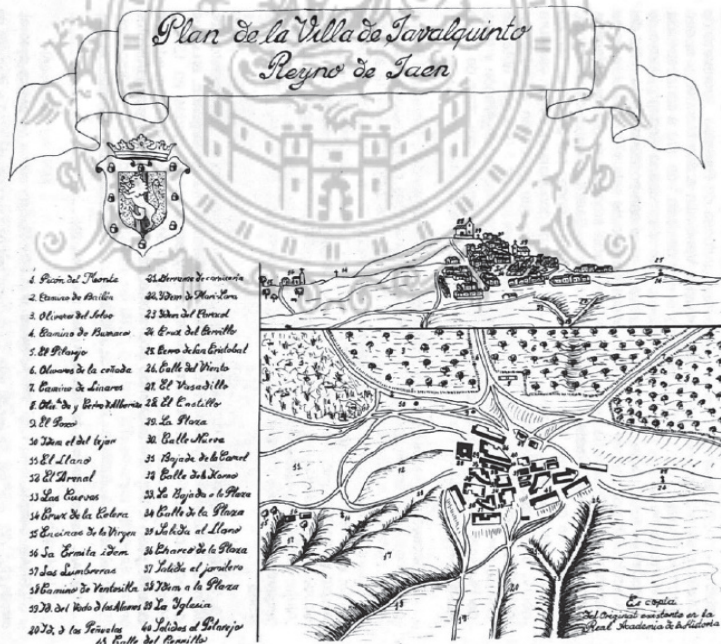 Plan de la Villa de Javalquinto
Reyno de Jaen
1. Picón del Monte
2. Camino de Bailén
3. Olivares del Sotoo
4. Camino de Barraco
5. El Pilarejo
6. Olivares de la cañada
7. Camino de Linares
8. Oliv.ˢ de y Cerro d Alberizo
9. El Pozo
10 Idem el del tejar
11 El Llano
12 El Arenal
13 Las Cuevas
14 Cruz de la Colera
15 Encinas de la Virgen
16 La Ermita idem
17 Las Lumbreras
18 Camino de Ventosilla
19 Id. del Vado d las Alamos
20 Id. d las Peñuelas
21 Derrame de carnicería
22 Idem de Mari-Lara
23 Idem del
24 Cruz del Cerrillo
25 Cerro de San Cristobal
26 Calle del Viento
27 El Vasadillo
28 El Castillo
29 La Plaza
30 Calle Nueva
31 Bajada de la Carcel
32 Calle del Horno
33 La Bajada a la Plaza
34 Calle de la Plaza
35 Salida al Llano
36 Charco de la Plaza
37 Salida al
38 Idem a la Plaza
39 La Iglesia
40 Salidas al Pilarejo
41 Calle del Cerrillo
Es copia
del Original existente en la
Real Academia de la Historia